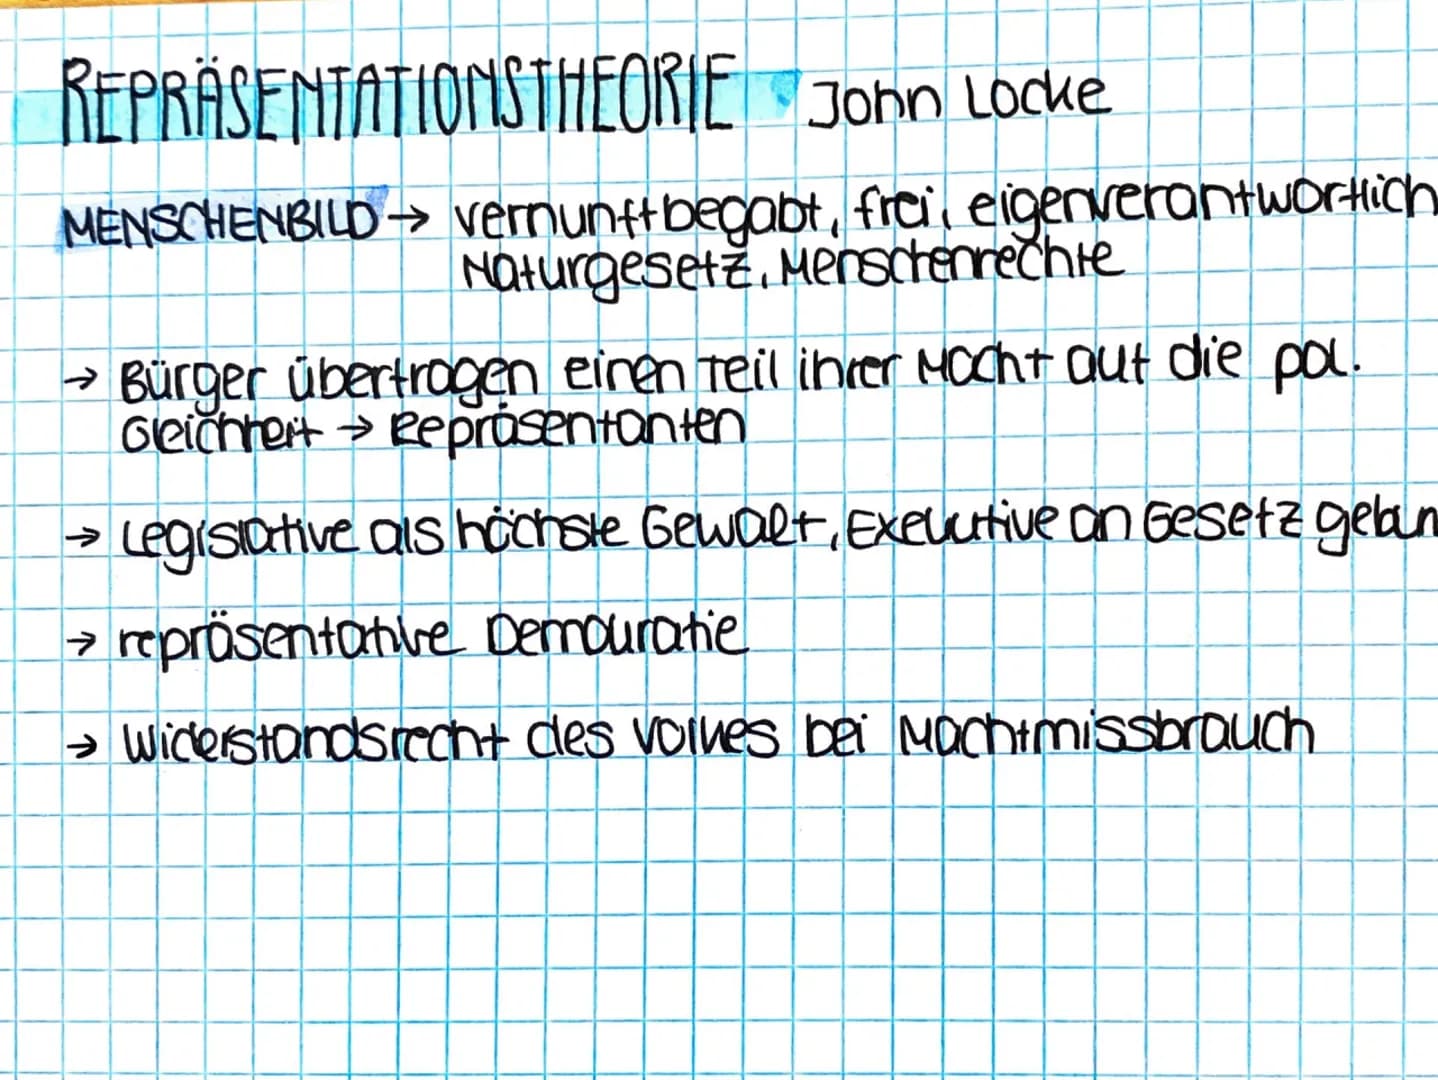 REPRÄSENTATIONSTHEORIE John Locke
MENSCHENBILD → vernunftbegabt, frei, eigenverantwortlich
Naturgesetz, Menschenrechte
→ Bürger übertragen einen Teil ihrer Macht auf die pol.
Gleichheit → Repräsentanten
→ Legislative als höchste Gewalt, Exekutive an Gesetz gebun
→ repräsentative Demokratie
→ Widerstandsrecht des Volkes bei Machtmissbrauch